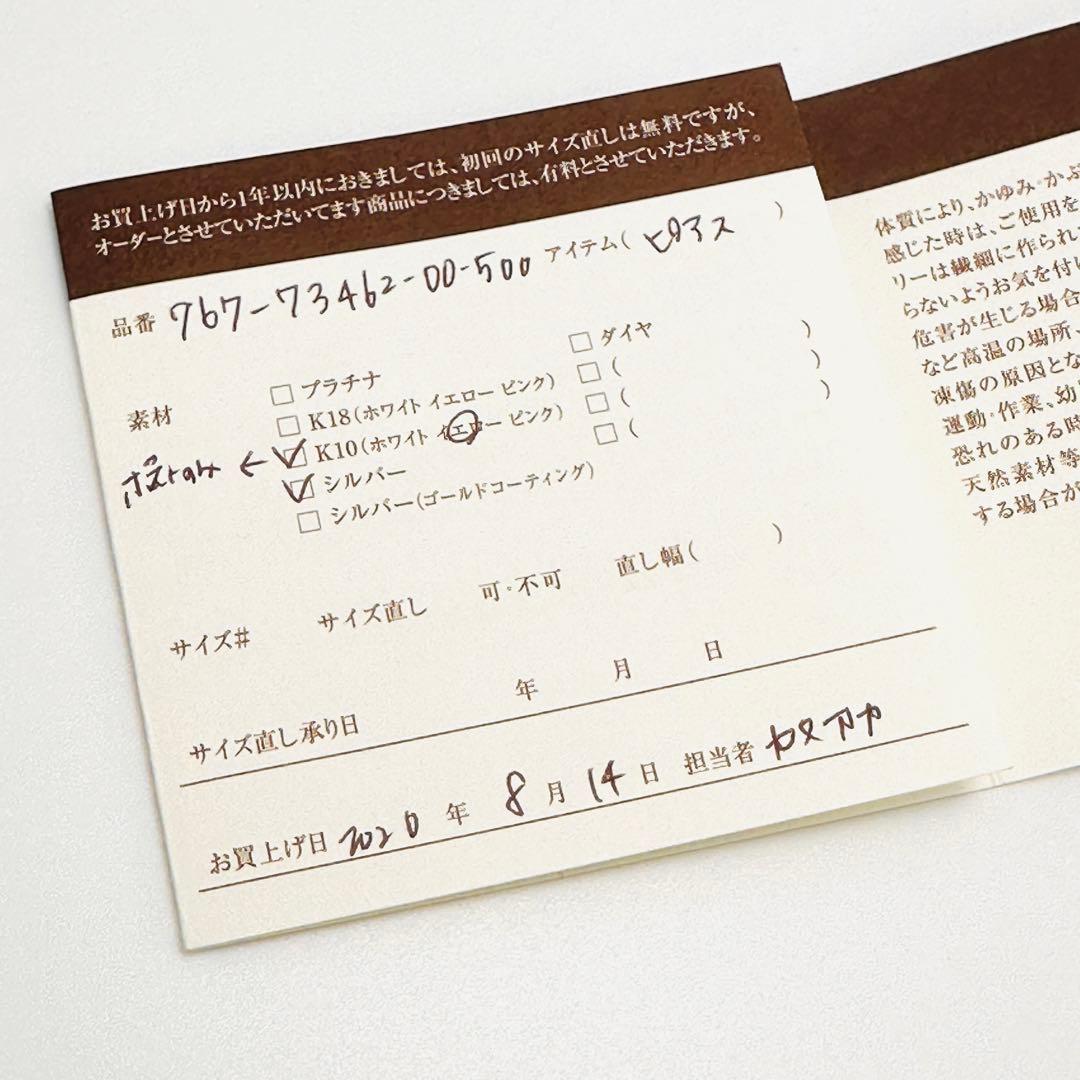 お買上げ日から1年以内におきましては、初回のサイズ直しは無料ですが、
オーダーとさせていただいてます商品につきましては、有料とさせていただきます。
品番 767-73462-00-500 アイテム( ピアス )
素材
□ プラチナ
□ K18(ホワイト イエロー ピンク)
ポストのみ ← ☑ K10(ホワイト イエロー ピンク)
☑ シルバー
□ シルバー(ゴールドコーティング)
□ ダイヤ
□ ( )
□ ( )
□ ( )
サイズ# サイズ直し 可・不可 直し幅( )
サイズ直し承り日 年 月 日
お買上げ日 2020 年 8 月 14 日 担当者
体質により、かゆみ・かぶ
感じた時は、ご使用を
リーは繊細に作られ
らないようお気を付け
危害が生じる場合
など高温の場所、
凍傷の原因とな
運動・作業、幼
恐れのある時
天然素材等
する場合が